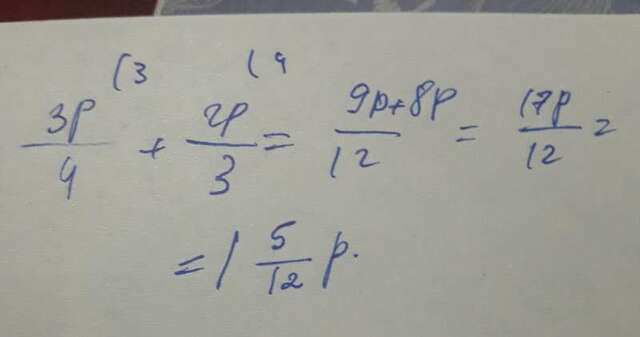 (3 (4
3p/4 + 2p/3 = 9p+8p/12 = 17p/12 =
= 1 5/12 p.